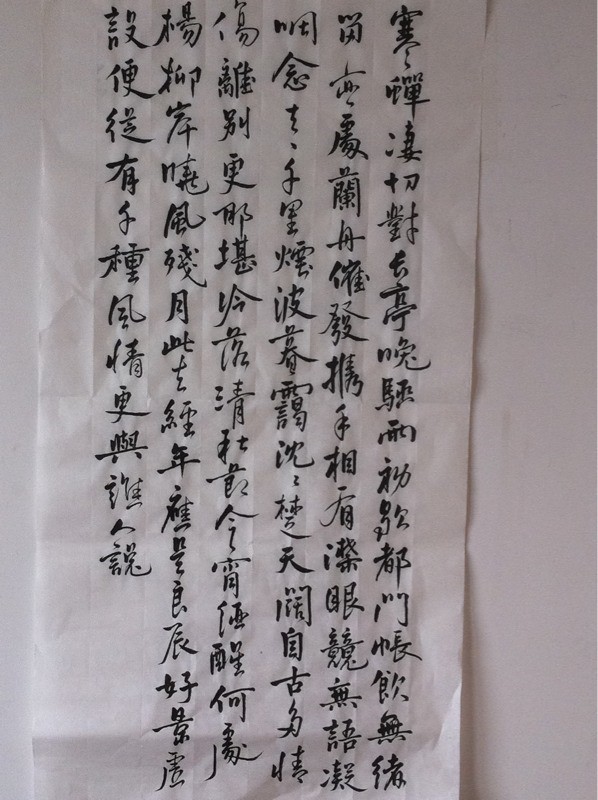 寒蟬淒切對長亭晚驟雨初歇都門帳飲無緒
留恋處蘭舟催發携手相看淚眼競無語凝
咽念去〻千里煙波暮靄沈〻楚天闊自古多情
傷離別更那堪冷落清秋節今宵酒醒何處
楊柳岸曉風殘月此去經年應是良辰好景虛
設便從有千種風情更與誰人說